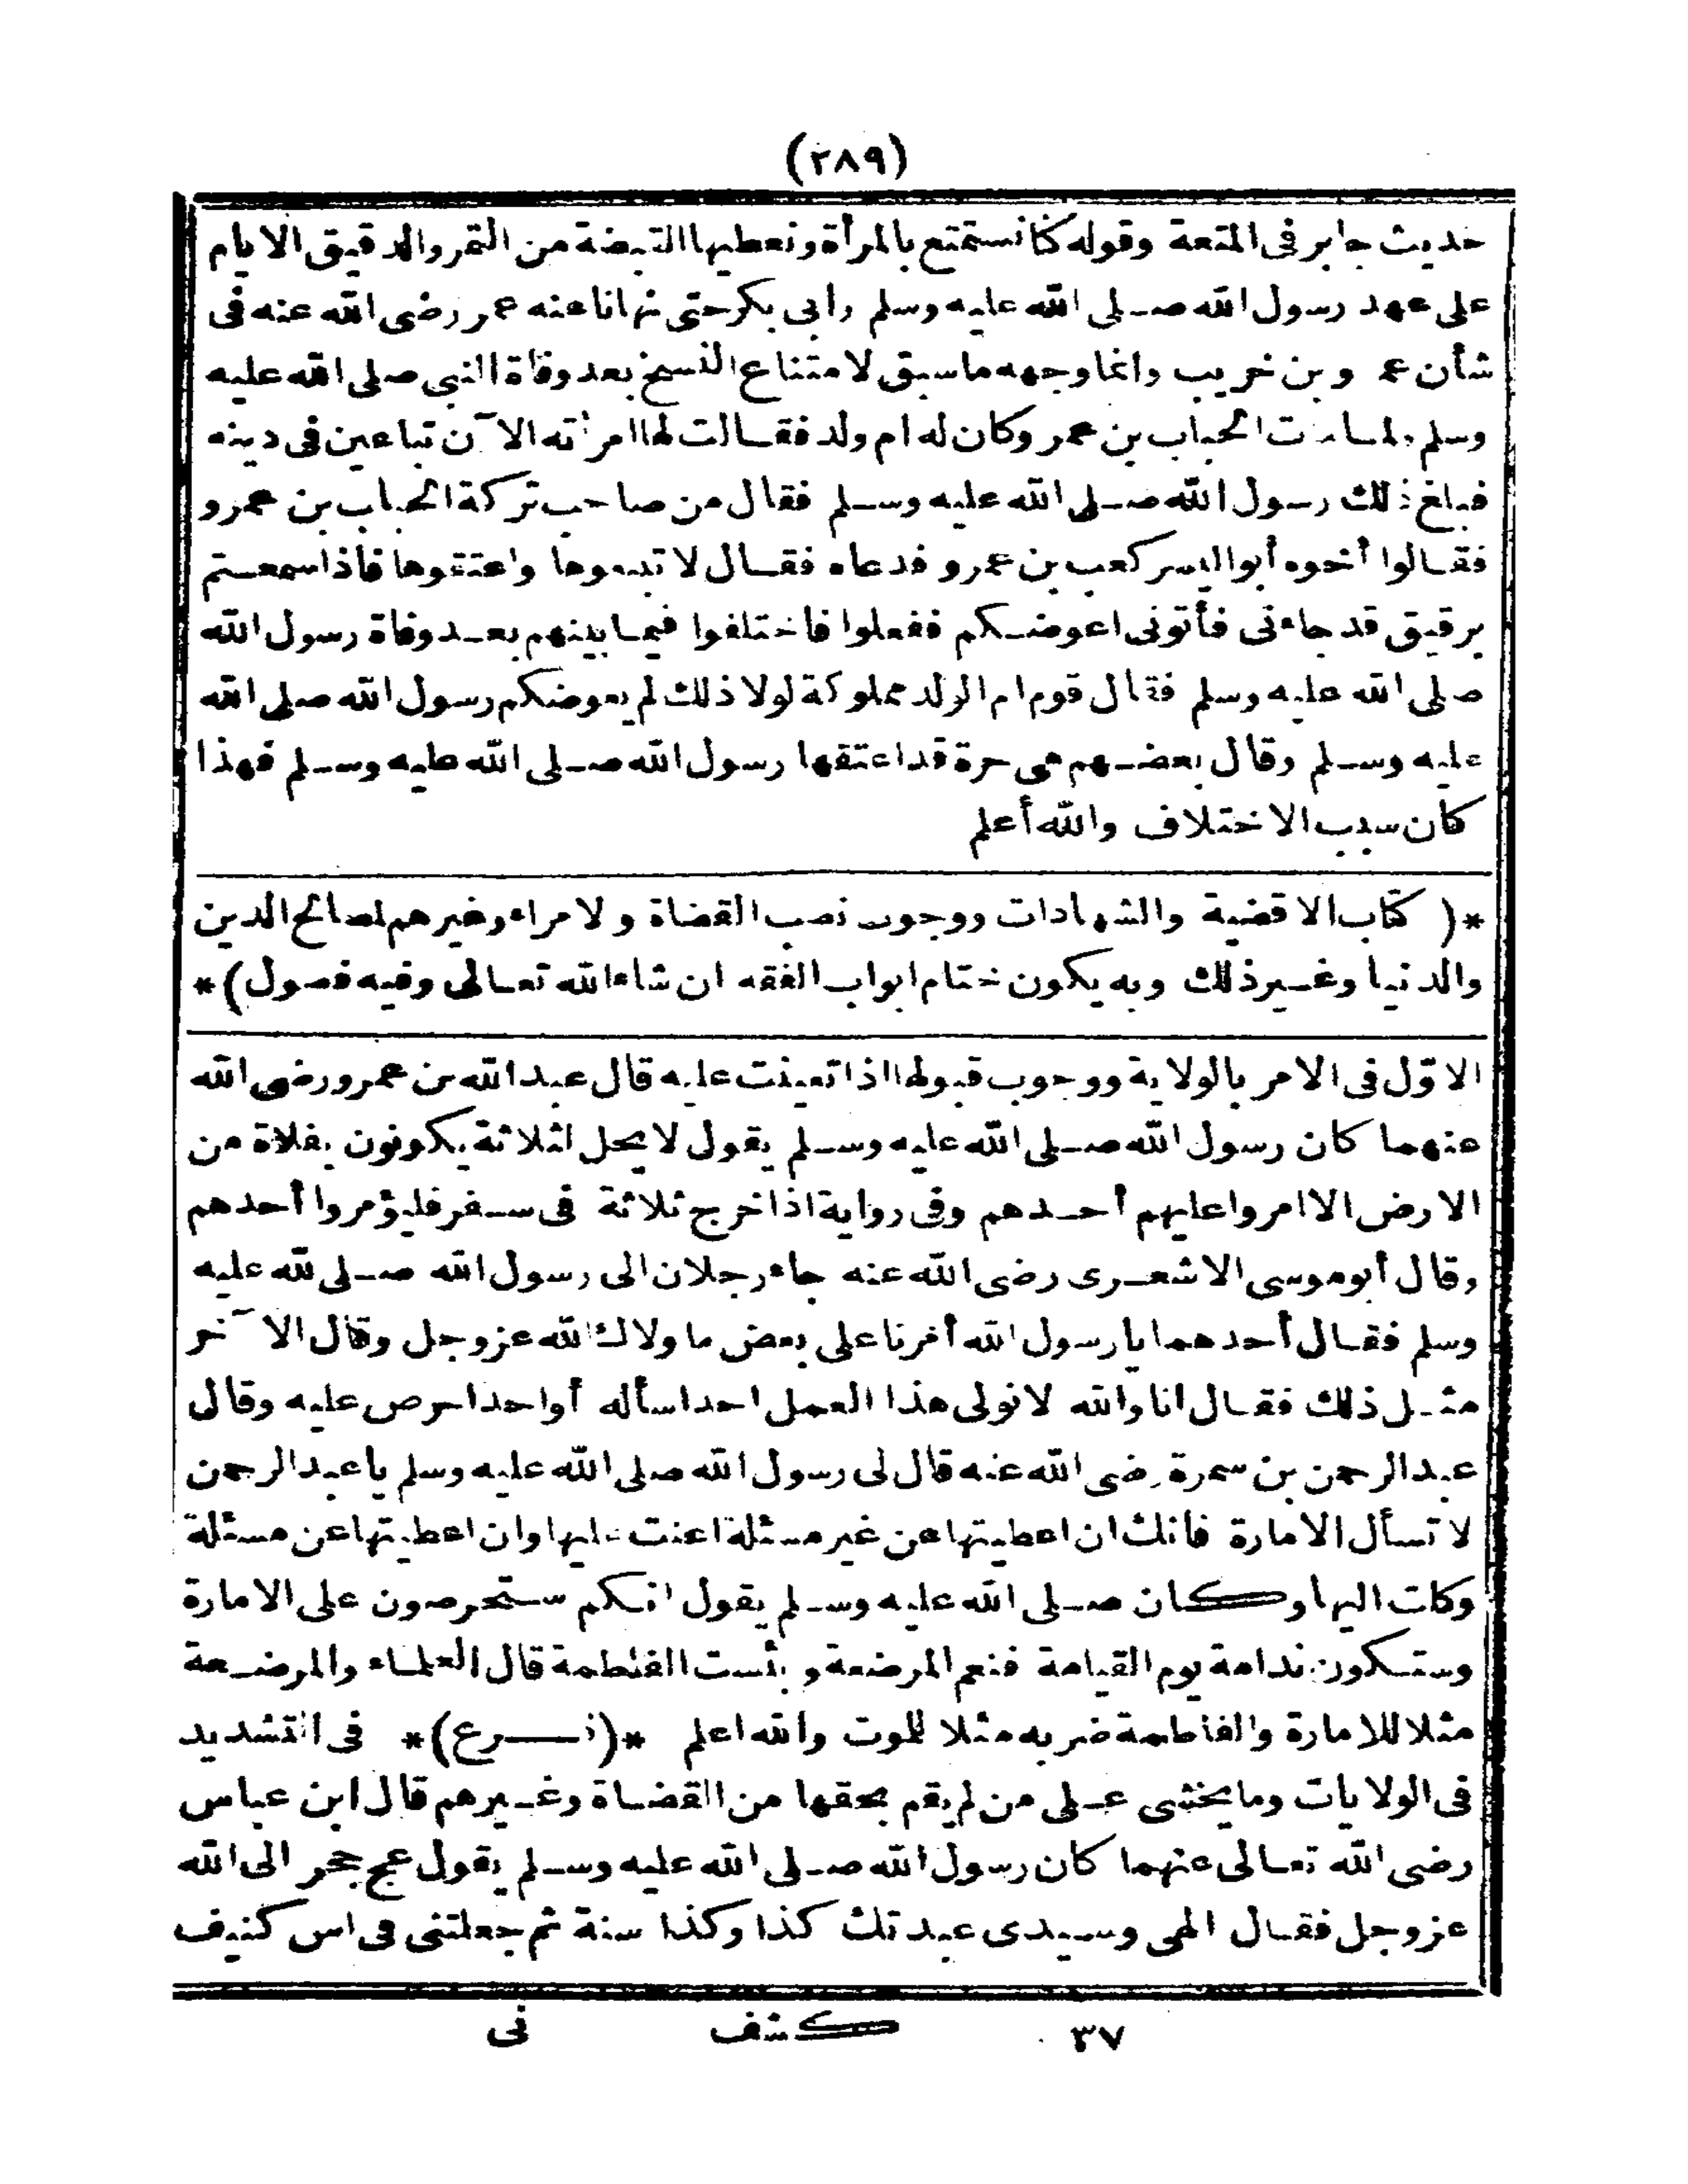 (٢٨٩)
حديث جابر فى المتعة وقوله كنا نستمتع بالمرأة ونعطيها القبضة من التمر والدقيق الايام
على عهد رسول الله صلى الله عليه وسلم وأبى بكر حتى نهانا عنه عمر رضى الله عنه فى
شأن عمرو بن حريب وانما وجهه ما سبق لامتناع النسخ بعد وفاة النبى صلى الله عليه
وسلم ولما مات الحباب بن عمر وكان له ام ولد فقالت لها امرأته الآن تباعين فى دينه
فبلغ ذلك رسول الله صلى الله عليه وسلم فقال من صاحب تركة الحباب بن عمرو
فقالوا أخوه أبو اليسر كعب بن عمرو فدعاه فقال لا تبيعوها واعتقوها فاذا سمعتم
برقيق قد جاءنى فأتونى اعوضكم ففعلوا فاختلفوا فيما بينهم بعد وفاة رسول الله
صلى الله عليه وسلم فقال قوم ام الولد مملوكة لولا ذلك لم يعوضكم رسول الله صلى الله
عليه وسلم وقال بعضهم هى حرة قد اعتقها رسول الله صلى الله عليه وسلم فهذا
كان سبب الاختلاف والله أعلم
*( كتاب الاقضية والشهادات ووجوب نصب القضاة ولامراء وغيرهم لصالح الدين
والدنيا وغير ذلك وبه يكون ختام ابواب الفقه ان شاء الله تعالى وفيه فصول )*
الاوّل فى الامر بالولاية ووجوب قبولها اذا تعينت عليه قال عبد الله بن عمرو رضى الله
عنهما كان رسول الله صلى الله عليه وسلم يقول لا يحل لثلاثة يكونون بفلاة من
الارض الا امروا عليهم أحدهم وفى رواية اذا خرج ثلاثة فى سفر فليؤمروا أحدهم
وقال أبو موسى الاشعرى رضى الله عنه جاء رجلان الى رسول الله صلى لله عليه
وسلم فقال أحدهما يا رسول الله أمرنا على بعض ما ولاك الله عز وجل وقال الآخر
مثل ذلك فقال انا والله لا نولى هذا العمل احدا سأله أو احدا حرص عليه وقال
عبد الرحمن بن سمرة رضى الله عنه قال لى رسول الله صلى الله عليه وسلم يا عبد الرحمن
لا تسأل الامارة فانك ان اعطيتها عن غير مسئلة اعنت عليها وان اعطيتها عن مسئلة
وكات اليها وكان صلى الله عليه وسلم يقول انكم ستحرصون على الامارة
وستكون ندامة يوم القيامة فنعم المرضعة وبئست الفاطمة قال العلماء والمرضعة
مثلا للامارة والفاطمة ضربه مثلا للموت والله اعلم *(فرع)* فى التشديد
فى الولايات وما يخشى على من لم يقم بحقها من القضاة وغيرهم قال ابن عباس
رضى الله تعالى عنهما كان رسول الله صلى الله عليه وسلم يقول عج حجر الى الله
عز وجل فقال الهى وسيدى عبدتك كذا وكذا سنة ثم جعلتنى فى اس كنيف
٣٧ كشف نى